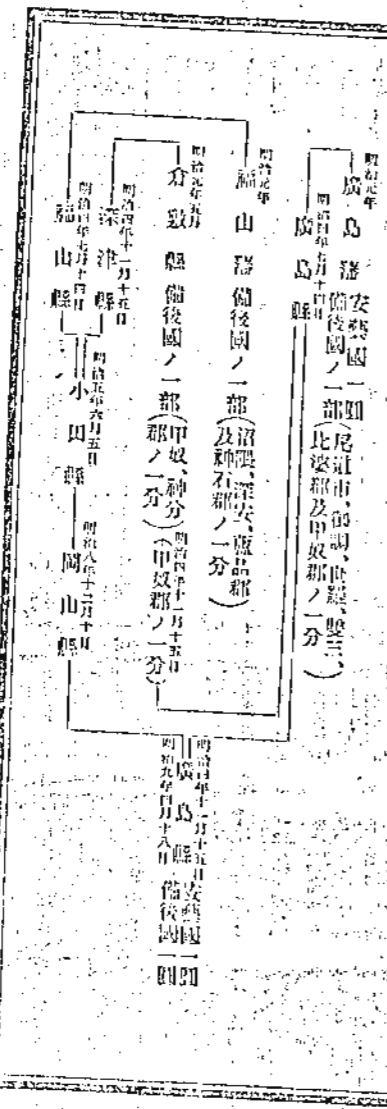 明治元年
廣島藩
安藝國一圓
備後國ノ一部(尾道市、御調、世羅、雙三、
比婆郡及甲奴郡ノ一分)
明治四年七月十四日
廣島縣
明治元年
福山藩 備後國ノ一部(沼隈、深安、蘆品郡
及神石郡ノ一分)
明治元年五月
倉敷縣 備後國ノ一部(甲奴、神分
郡ノ一分)
明治四年十一月十五日
(甲奴郡ノ一分)
明治四年十一月十五日
深津縣
明治四年七月十四日
福山縣
明治五年六月五日
小田縣
明治八年十二月十日
岡山縣
明治四年十一月十五日
廣島縣
安藝國一圓
明治九年四月十八日
備後國一圓